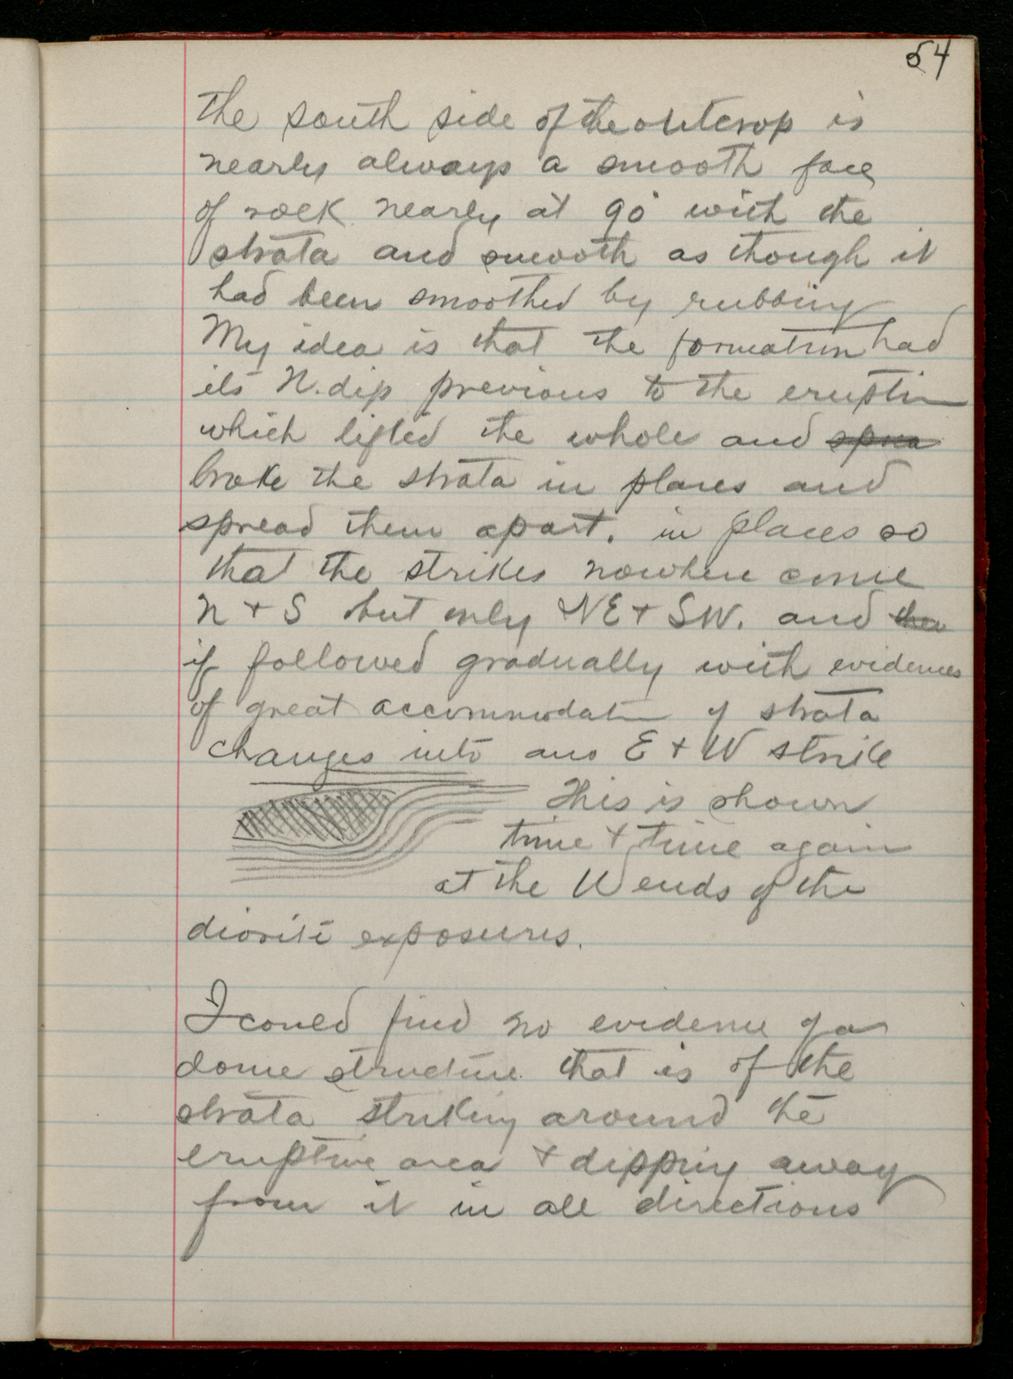 54
the south side of the outcrop is
nearly always a smooth face
of rock nearly at 90° with the
strata and smooth as though it
had been smoothed by rubbing
My idea is that the formation had
its N. dip previous to the eruption
which lifted the whole and
broke the strata in places and
spread them apart. in places so
that the strikes nowhere come
N + S but only NE + SW. and
if followed gradually with evidences
of great accommodation of strata
changes into an E + W strike
This is shown
time + time again
at the W ends of the
diorite exposures.
I could find no evidence of a
dome structure that is of the
strata striking around the
eruptive area + dipping away
from it in all directions